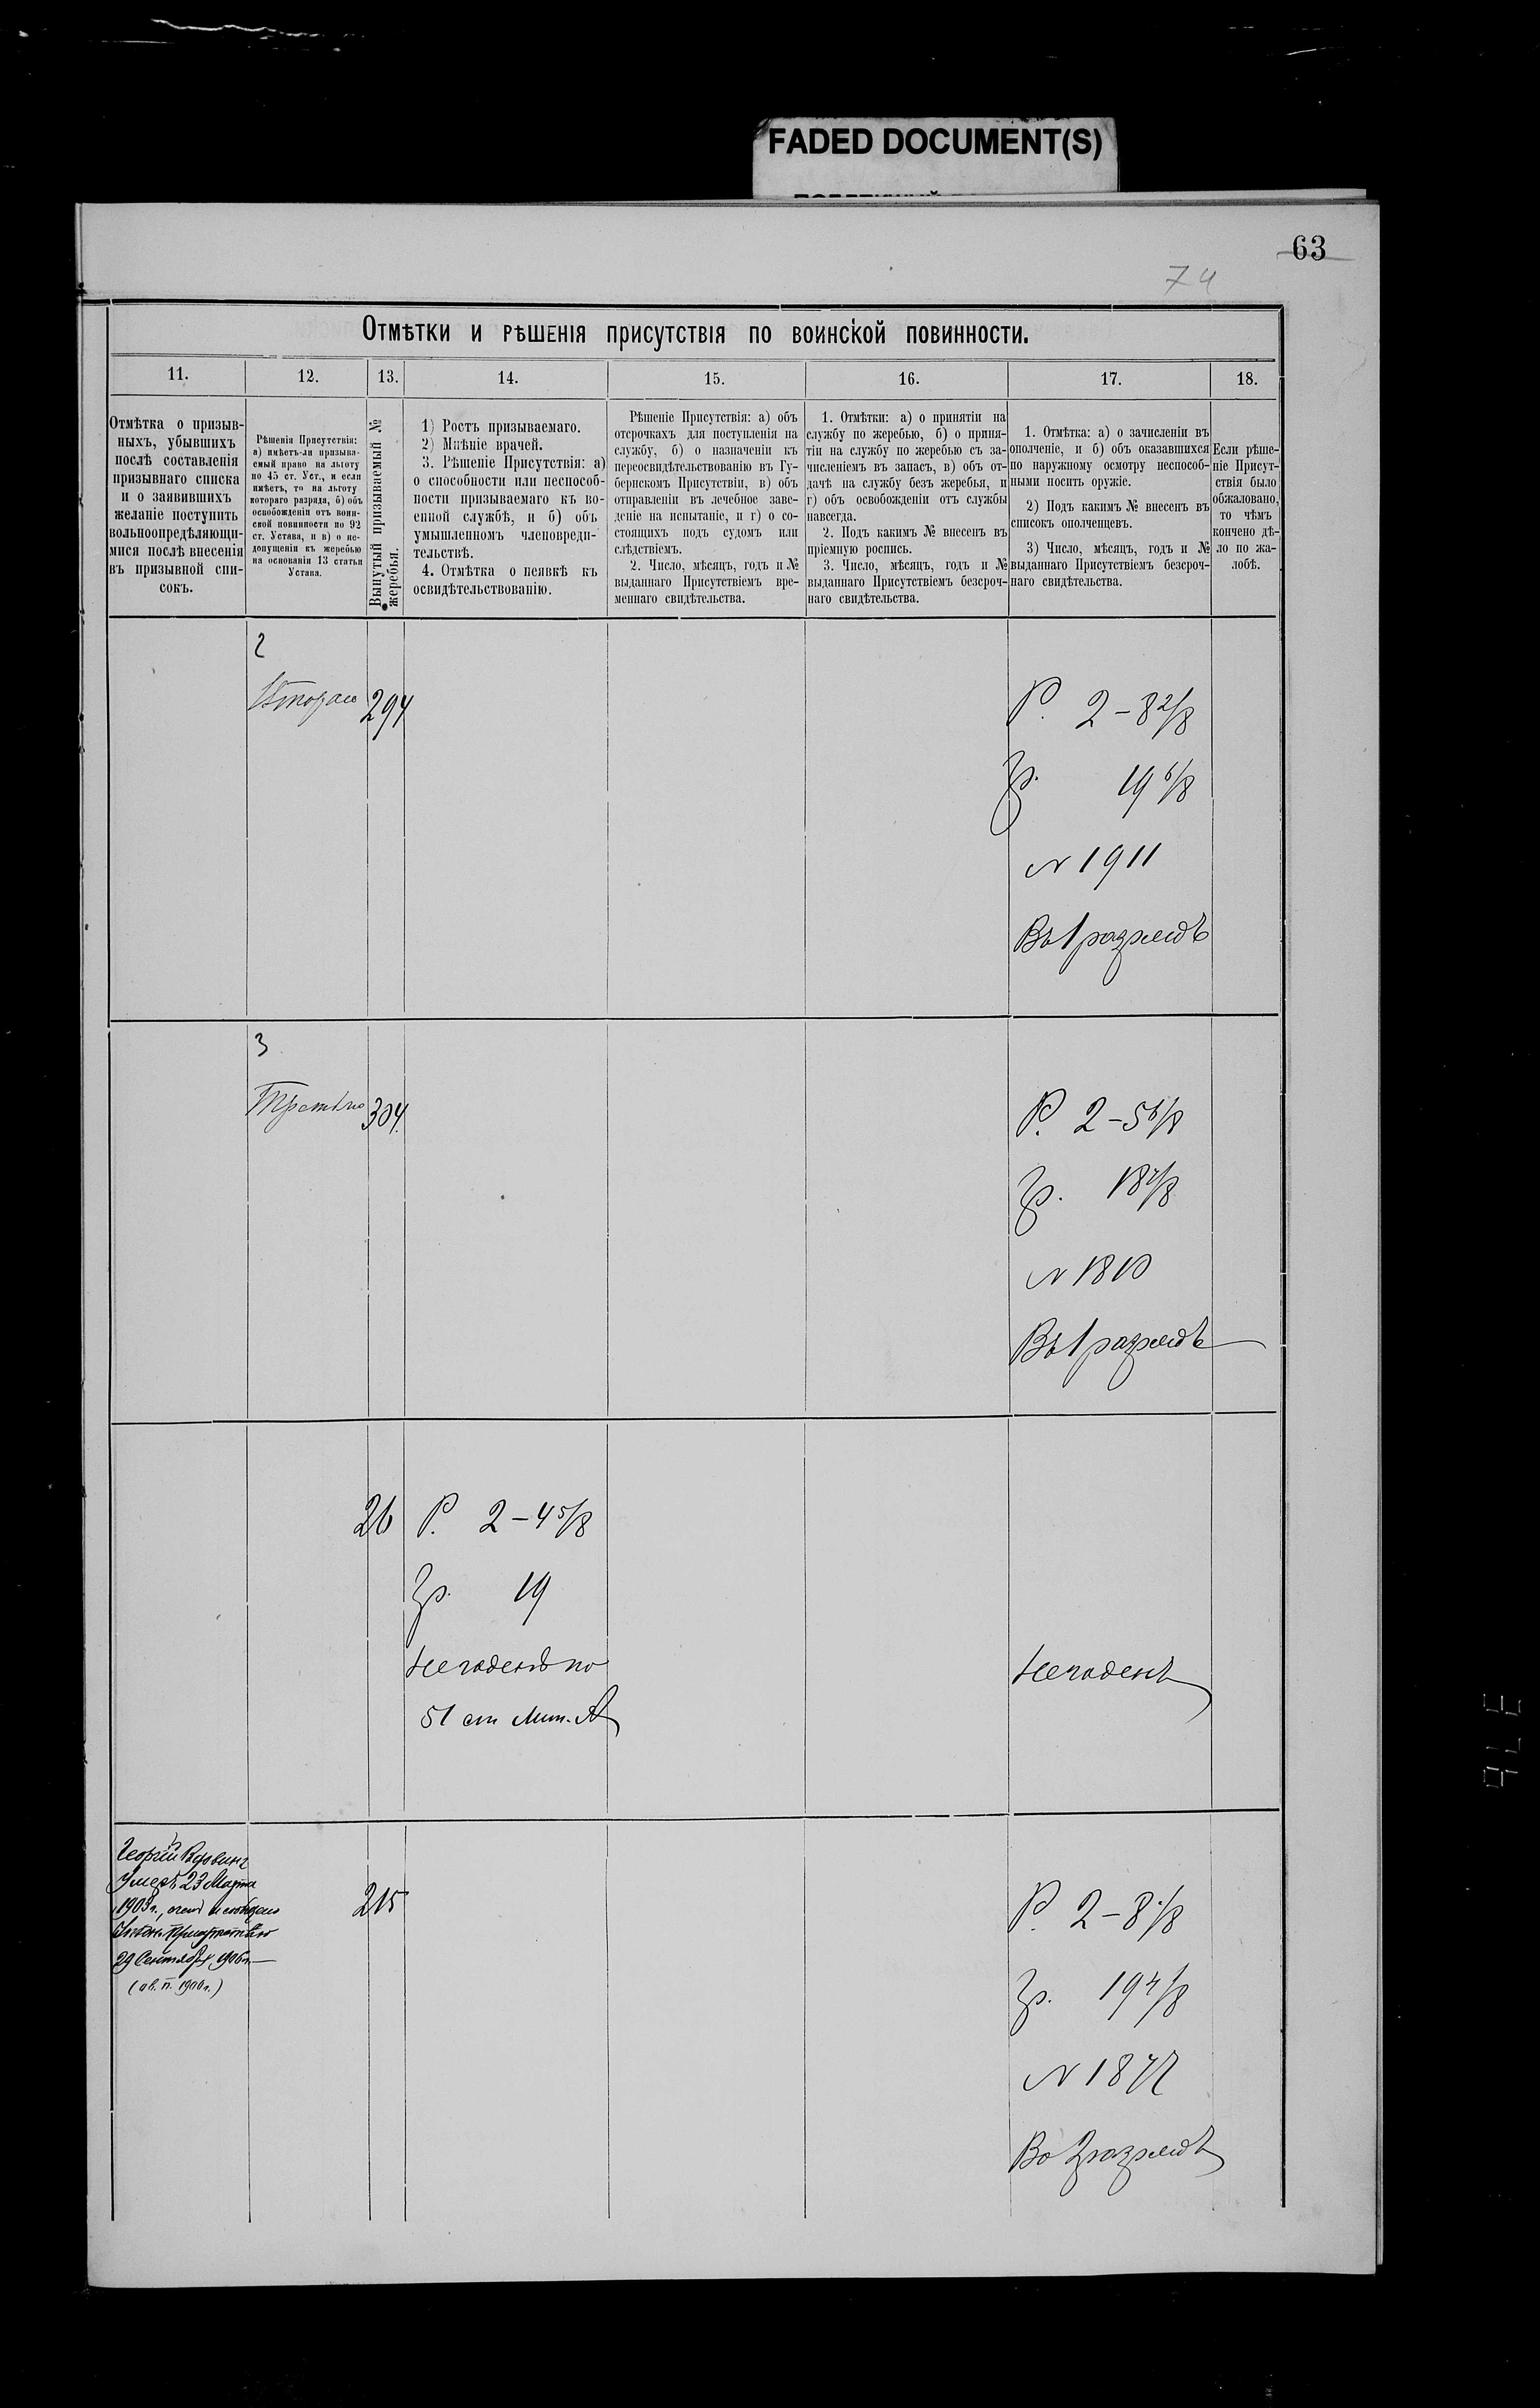 FADED DOCUMENT(S)
63
74
Отмѣтки и рѣшенія присутствія по воинской повинности.
11. 12. 13. 14. 15. 16. 17. 18.
Отмѣтка о призыв-
ныхъ, убывшихъ
послѣ составленія
призывнаго списка
и о заявившихъ
желаніе поступить
вольноопредѣляющи-
мися послѣ внесенія
въ призывной спи-
сокъ.
Рѣшенія Присутствія:
а) имѣетъ-ли призыва-
емый право на льготу
по 45 ст. Уст., и если
имѣетъ, то на льготу
котораго разряда, б) объ
освобожденіи отъ воин-
ской повинности по 92
ст. Устава, и в) о не-
допущеніи къ жеребью
на основаніи 13 статьи
Устава.
Вынутый призываемый №
жеребья.
1) Ростъ призываемаго.
2) Мнѣніе врачей.
3. Рѣшеніе Присутствія: а)
о способности или неспособ-
ности призываемаго къ во-
енной службѣ, и б) объ
умышленномъ членовреди-
тельствѣ.
4. Отмѣтка о неявкѣ къ
освидѣтельствованію.
Рѣшеніе Присутствія: а) объ
отсрочкахъ для поступленія на
службу, б) о назначеніи къ
переосвидѣтельствованію въ Гу-
бернскомъ Присутствіи, в) объ
отправленіи въ лечебное заве-
деніе на испытаніе, и г) о со-
стоящихъ подъ судомъ или
слѣдствіемъ.
2. Число, мѣсяцъ, годъ и №
выданнаго Присутствіемъ вре-
меннаго свидѣтельства.
1. Отмѣтки: а) о принятіи на
службу по жеребью, б) о приня-
тіи на службу по жеребью съ за-
численіемъ въ запасъ, в) объ от-
дачѣ на службу безъ жеребья, и
г) объ освобожденіи отъ службы
навсегда.
2. Подъ какимъ № внесенъ въ
пріемную роспись.
3. Число, мѣсяцъ, годъ и №
выданнаго Присутствіемъ безсроч-
наго свидѣтельства.
1. Отмѣтка: а) о зачисленіи въ
ополченіе, и б) объ оказавшихся
по наружному осмотру неспособ-
ными носить оружіе.
2) Подъ какимъ № внесенъ въ
списокъ ополченцевъ.
3) Число, мѣсяцъ, годъ и №
выданнаго Присутствіемъ безсроч-
наго свидѣтельства.
Если рѣше-
ніе Присут-
ствія было
обжаловано,
то чѣмъ
кончено дѣ-
ло по жа-
лобѣ.
2
Второю 294
Р. 2-8 2/8
Гр. 19 6/8
N 1911
Въ 1 разрядъ
3
Третью 304.
Р. 2-5 6/8
Гр. 18 4/8
N 1810
Въ 1 разрядъ
26
Р. 2-4 5/8
Гр. 19
Негоденъ по
51 ст Лит. А
Негоденъ
Георгій Вдовинъ
Умеръ 23 Марта
1903г.,
Присутствію
29 Сентября 1906г.
215
Р. 2-8 1/8
Гр. 19 4/8
N 1877
Во 2 разрядъ
376